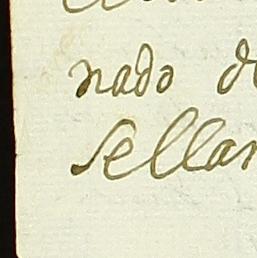 nado de
sellar